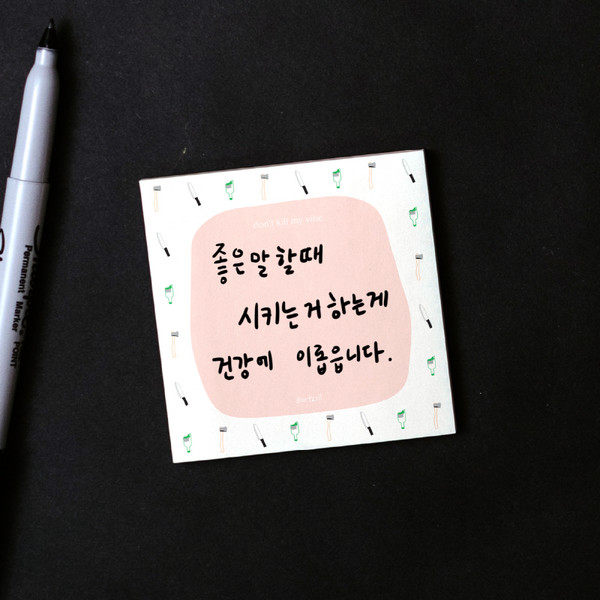 don't kill my vibe
좋은말 할때
시키는거 하는게
건강에 이롭읍니다.
Permanent Marker POINT